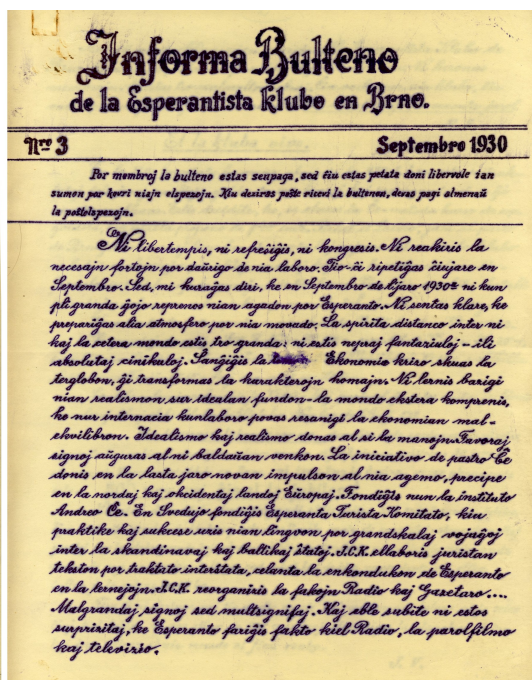 Informa Bulteno
de la Esperantista klubo en Brno.
Nro 3 Septembro 1930
Por membroj la bulteno estas senpaga, sed ĉiu estas petata doni libervole ian
sumon por kovri niajn elspezojn. Kiu deziras poŝte ricevi la bultenon, devas pagi almenaŭ
la poŝtelspezojn.
Ni libertempis, ni refreŝiĝis, ni kongresis. Ni reakiris la
necesajn fortojn por daŭrigo de nia laboro. Tio-ĉi ripetiĝas ĉiujare en
Septembro. Sed, mi kuraĝas diri, ke en Septembro de l'jaro 1930a ni kun
pli granda ĝojo reprenos nian agadon por Esperanto. Ni sentas klare, ke
prepariĝas alia atmosfero por nia movado. La spirita distanco inter ni
kaj la cetera mondo estis tro granda: ni estis nepraj fantaziuloj - ili
absolutaj cinikuloj. Ŝanĝiĝis la Ekonomio krizo skuas la
terglobon, ĝi transformas la karakterojn homajn. Ni lernis bazigi
nian realismon sur idealan fundon - la mondo ekstera komprenis,
ke nur internacia kunlaboro povas resanigi la ekonomian mal-
ekvilibron. Idealismo kaj realismo donas al si la manojn. Favoraj
signoj aŭguras al ni baldaŭan venkon. La iniciativo de pastro Ĉe
donis en la lasta jaro novan impulson al nia agemo, precipe
en la nordaj kaj okcidentaj landoj Eŭropaj. Fondiĝis nun la instituto
Andreo Ĉe. En Svedujo fondiĝis Esperanta Turista Komitato, kiu
praktike kaj sukcese uzis nian lingvon por grandskalaj vojaĝoj
inter la skandinavaj kaj baltikaj ŝtatoj. I.C.K. ellaboris juristan
tekston por traktato interŝtata, celanta la enkondukon de Esperanto
en la lernejojn. I.C.K. reorganizis la fakojn Radio kaj Gazetaro....
Malgrandaj signoj sed multsignifaj. Kaj eble subite ni estos
surprizitaj, ke Esperanto fariĝis fakto kiel Radio, la parolfilmo
kaj televizio.